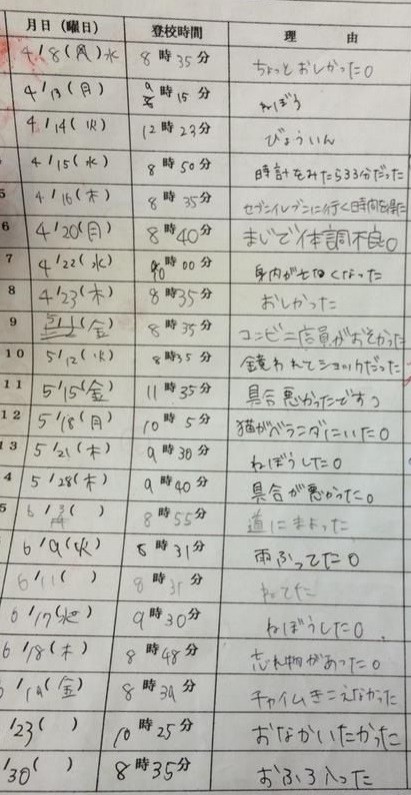 月日(曜日) 登校時間 理由
4/8(水) 8時35分 ちょっとおしかった。
4/13(月) 9時15分 ねぼう
4/14(火) 12時23分 びょういん
4/15(水) 8時50分 時計をみたら33分だった
5 4/16(木) 8時35分 セブンイレブンに行く時間を
6 4/20(月) 8時40分 まじで体調不良。
7 4/22(水) 10時00分 身内が亡くなった
8 4/23(木) 8時35分 おしかった
9 (金) 8時35分 コンビニ店員がおそかった
10 5/12(火) 8時35分 鏡われてショックだった
11 5/15(金) 11時35分 具合悪かったです
12 5/18(月) 10時5分 猫がベランダにいた。
13 5/21(木) 9時30分 ねぼうした。
4 5/28(木) 9時40分 具合が悪かった。
5 6/ ( ) 8時55分 道にまよった
6/9(火) 8時31分 雨ふってた。
6/11( ) 8時31分 ねてた
6/17(水) 9時30分 ねぼうした。
6/18(木) 8時48分 忘れ物があった。
6/19(金) 8時39分 チャイムきこえなかった
/23( ) 10時25分 おなかいたかった
/30( ) 8時35分 おふろ入った